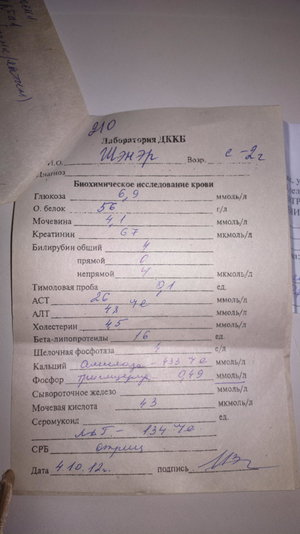 210
Лаборатория ДККБ
И.О. Шэнэр Возр. с-2г
Диагноз
Биохимическое исследование крови
Глюкоза 6,9 ммоль/л
О. белок 56 г/л
Мочевина 4,1 ммоль/л
Креатинин 67 мкмоль/л
Билирубин общий 4
прямой 0
непрямой 4 мкмоль/л
Тимоловая проба 0,1 ед.
АСТ 26 ммоль/л
АЛТ 48 ЧЕ ммоль/л
Холестерин 4,5 ммоль/л
Бета-липопротеиды 16 ед.
Щелочная фосфотаза ммоль/л
Кальций 433 ЧЕ ммоль/л
Фосфор 0,49 ммоль/л
Сывороточное железо ммоль/л
Мочевая кислота 43 ммоль/л
Серомукоид ед.
134 ЧЕ
СРБ отриц
Дата 4.10.12г. подпись